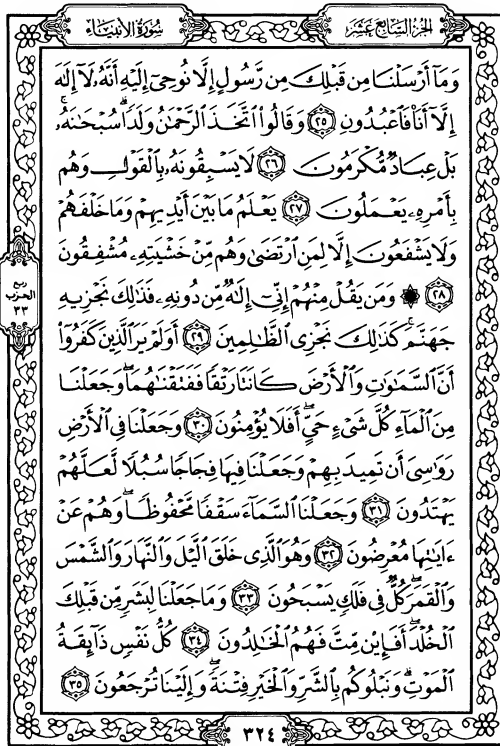 سُورَةُ الأَنْبِيَاء
الجُزْءُ السَّابِعَ عَشَرَ
وَمَآ أَرْسَلْنَا مِن قَبْلِكَ مِن رَّسُولٍ إِلَّا نُوحِىٓ إِلَيْهِ أَنَّهُۥ لَآ إِلَٰهَ
إِلَّآ أَنَا۠ فَٱعْبُدُونِ ٢٥ وَقَالُوا۟ ٱتَّخَذَ ٱلرَّحْمَٰنُ وَلَدًا ۗ سُبْحَٰنَهُۥ ۚ
بَلْ عِبَادٌ مُّكْرَمُونَ ٢٦ لَا يَسْبِقُونَهُۥ بِٱلْقَوْلِ وَهُم
بِأَمْرِهِۦ يَعْمَلُونَ ٢٧ يَعْلَمُ مَا بَيْنَ أَيْدِيهِمْ وَمَا خَلْفَهُمْ
وَلَا يَشْفَعُونَ إِلَّا لِمَنِ ٱرْتَضَىٰ وَهُم مِّنْ خَشْيَتِهِۦ مُشْفِقُونَ
٢٨ ۞ وَمَن يَقُلْ مِنْهُمْ إِنِّىٓ إِلَٰهٌ مِّن دُونِهِۦ فَذَٰلِكَ نَجْزِيهِ
جَهَنَّمَ ۚ كَذَٰلِكَ نَجْزِى ٱلظَّٰلِمِينَ ٢٩ أَوَلَمْ يَرَ ٱلَّذِينَ كَفَرُوٓا۟
أَنَّ ٱلسَّمَٰوَٰتِ وَٱلْأَرْضَ كَانَتَا رَتْقًا فَفَتَقْنَٰهُمَا ۖ وَجَعَلْنَا
مِنَ ٱلْمَآءِ كُلَّ شَىْءٍ حَىٍّ ۖ أَفَلَا يُؤْمِنُونَ ٣٠ وَجَعَلْنَا فِى ٱلْأَرْضِ
رَوَٰسِىَ أَن تَمِيدَ بِهِمْ وَجَعَلْنَا فِيهَا فِجَاجًا سُبُلًا لَّعَلَّهُمْ
يَهْتَدُونَ ٣١ وَجَعَلْنَا ٱلسَّمَآءَ سَقْفًا مَّحْفُوظًا ۖ وَهُمْ عَنْ
ءَايَٰتِهَا مُعْرِضُونَ ٣٢ وَهُوَ ٱلَّذِى خَلَقَ ٱلَّيْلَ وَٱلنَّهَارَ وَٱلشَّمْسَ
وَٱلْقَمَرَ ۖ كُلٌّ فِى فَلَكٍ يَسْبَحُونَ ٣٣ وَمَا جَعَلْنَا لِبَشَرٍ مِّن قَبْلِكَ
ٱلْخُلْدَ ۖ أَفَإِي۟ن مِّتَّ فَهُمُ ٱلْخَٰلِدُونَ ٣٤ كُلُّ نَفْسٍ ذَآئِقَةُ
ٱلْمَوْتِ ۗ وَنَبْلُوكُم بِٱلشَّرِّ وَٱلْخَيْرِ فِتْنَةً ۖ وَإِلَيْنَا تُرْجَعُونَ ٣٥
ربع
الحزب
٣٣
٣٢٤